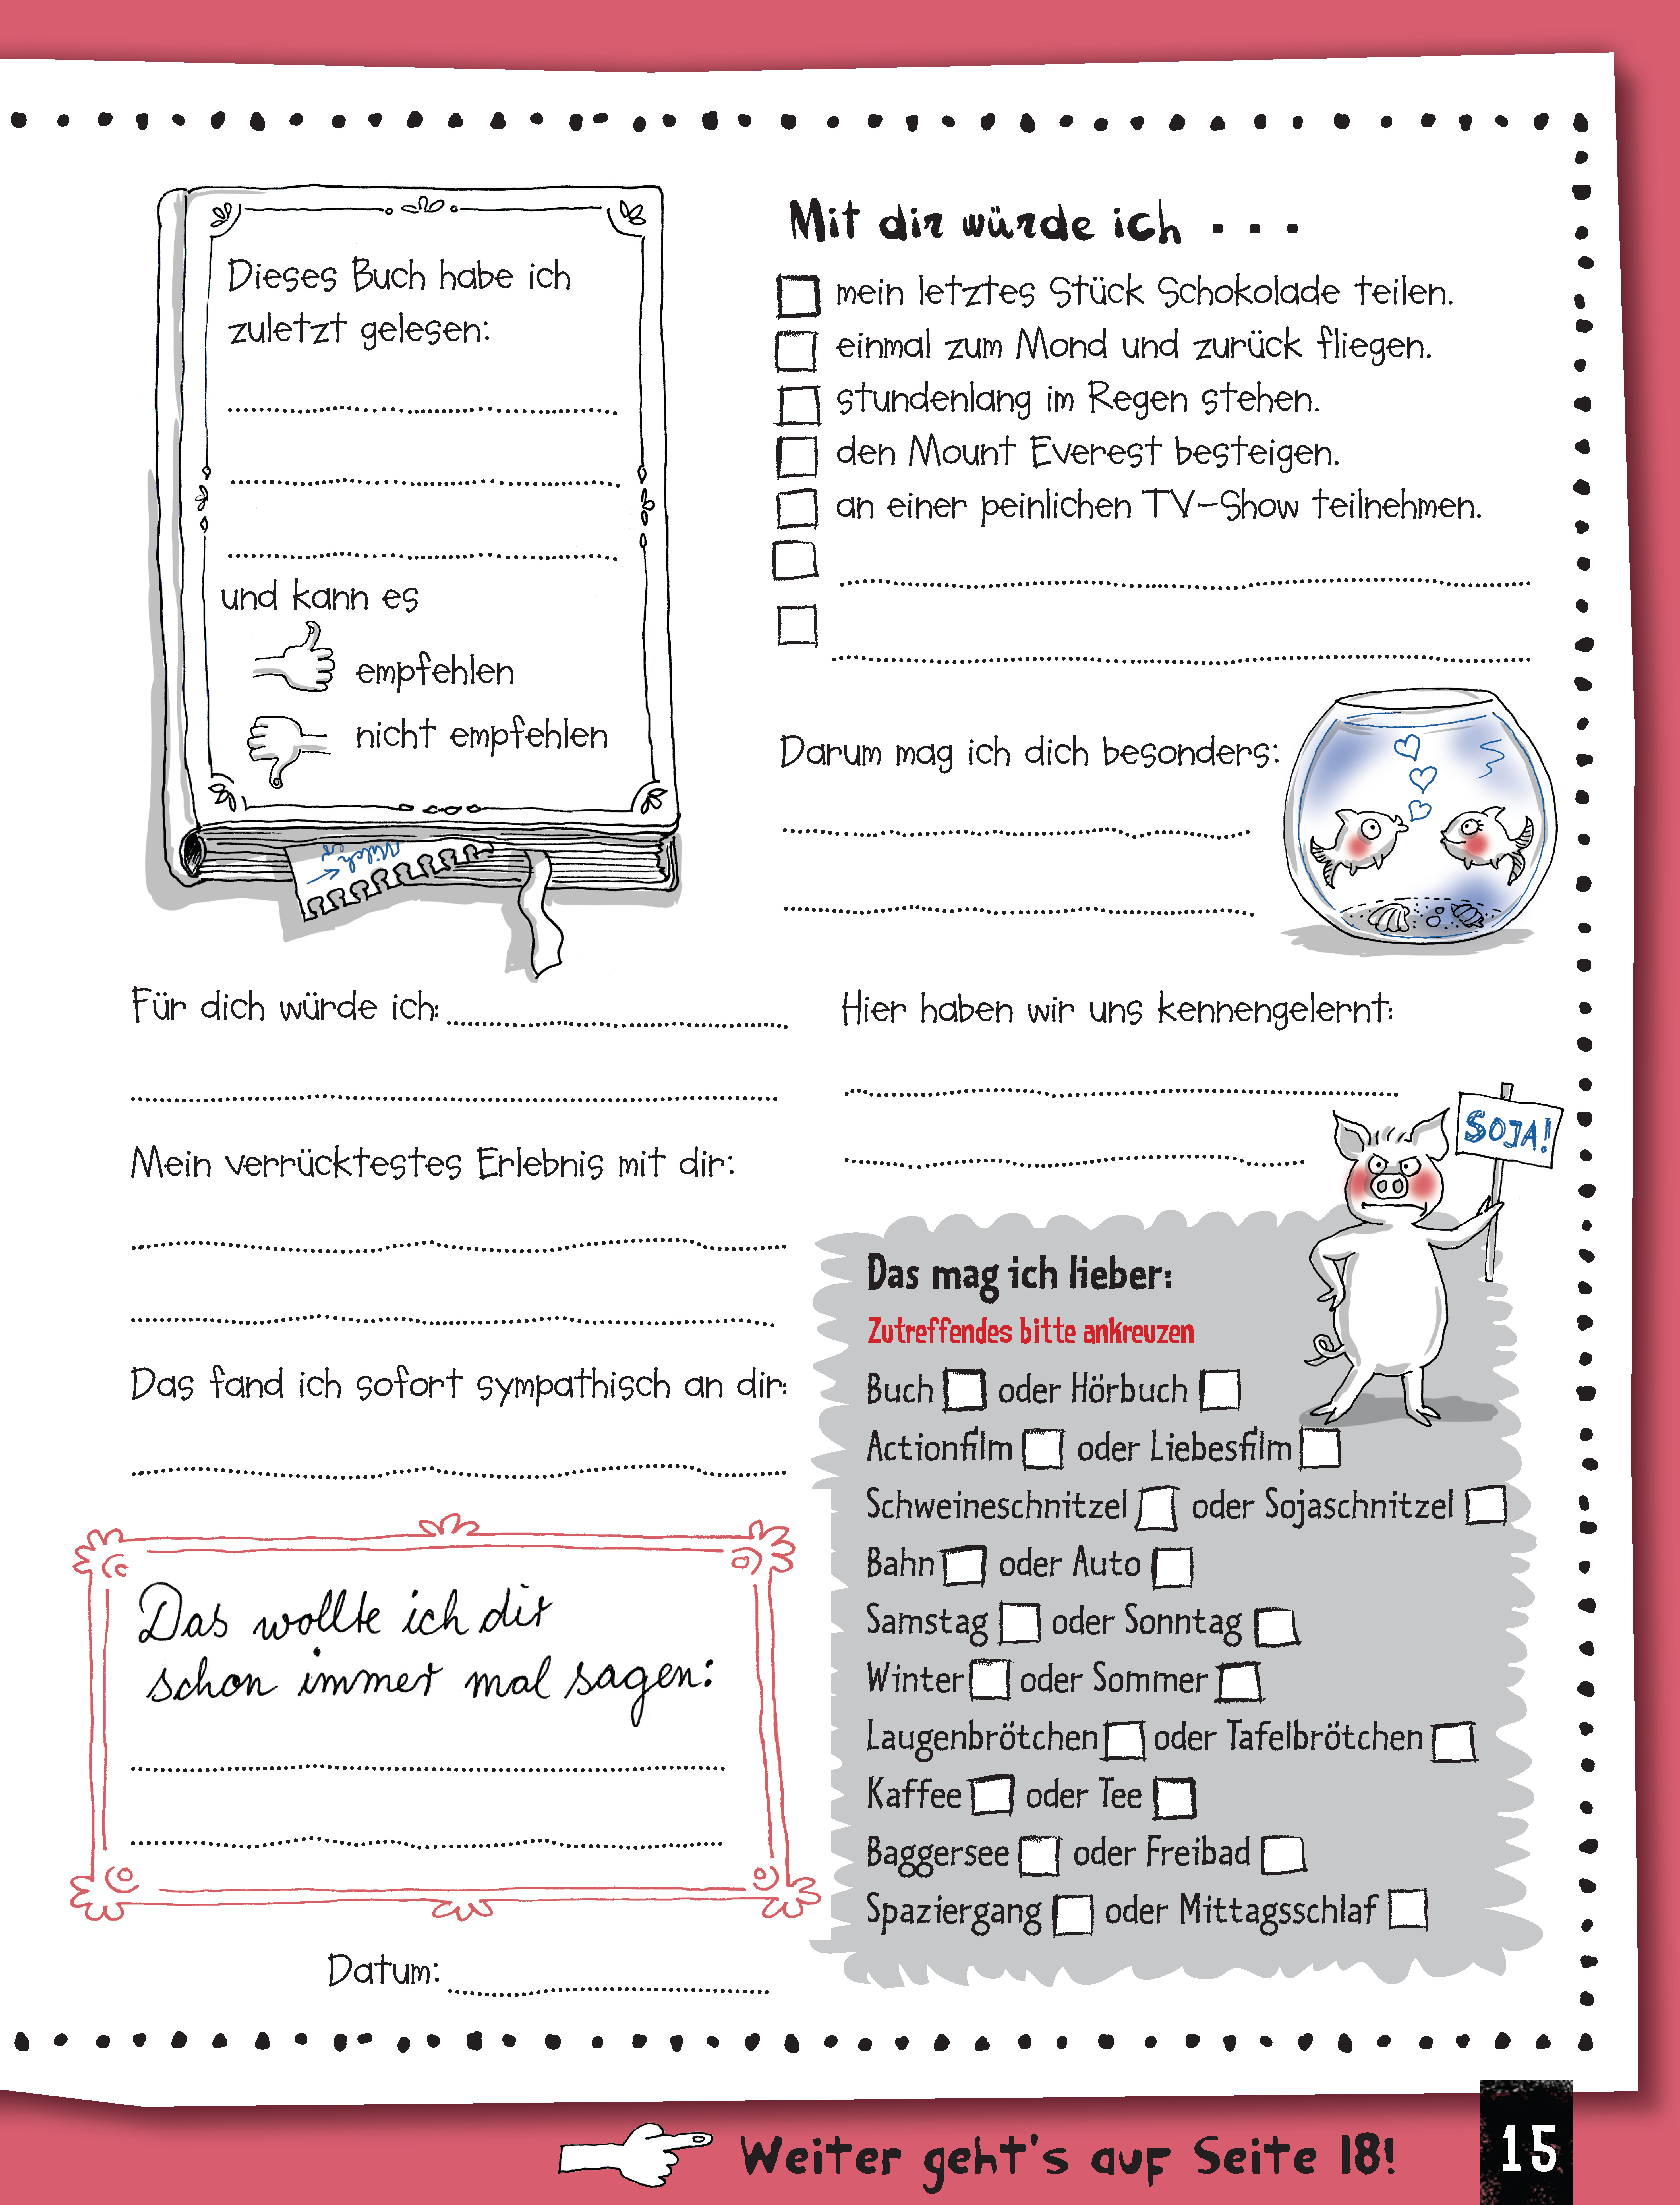 Dieses Buch habe ich
zuletzt gelesen:
und kann es
empfehlen
nicht empfehlen
Milch
Mit dir würde ich ...
mein letztes Stück Schokolade teilen.
einmal zum Mond und zurück fliegen.
stundenlang im Regen stehen.
den Mount Everest besteigen.
an einer peinlichen TV-Show teilnehmen.
Darum mag ich dich besonders:
Für dich würde ich:
Mein verrücktestes Erlebnis mit dir:
Das fand ich sofort sympathisch an dir:
Das wollte ich dir
schon immer mal sagen:
Datum:
Hier haben wir uns kennengelernt:
SOJA!
Das mag ich lieber:
Zutreffendes bitte ankreuzen
Buch oder Hörbuch
Actionfilm oder Liebesfilm
Schweineschnitzel oder Sojaschnitzel
Bahn oder Auto
Samstag oder Sonntag
Winter oder Sommer
Laugenbrötchen oder Tafelbrötchen
Kaffee oder Tee
Baggersee oder Freibad
Spaziergang oder Mittagsschlaf
Weiter geht's auf Seite 18!
15